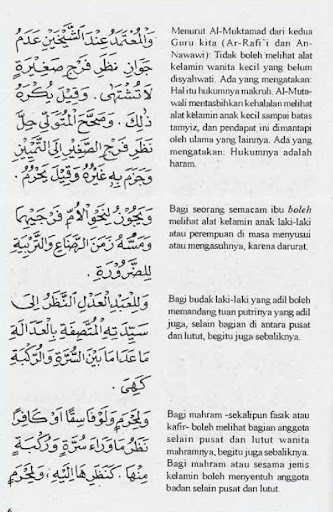 وَالْمُعْتَمَدُ عِنْدَ الشَّيْخَيْنِ عَدَمُ
جَوَازِ نَظَرِ فَرْجِ صَغِيْرَةٍ
لَا تُشْتَهَى . وَقِيْلَ يُكْرَهُ
ذٰلِكَ . وَصَحَّحَ الْمُتَوَلِّى حِلَّ
نَظَرِ فَرْجِ الصَّغِيْرِ اِلَى التَّمْيِيْزِ
وَجَزَمَ بِهِ غَيْرُهُ وَقِيْلَ يَحْرُمُ .
Menurut Al-Muktamad dari kedua
Guru kita (Ar-Rafi'i dan An-
Nawawi): Tidak boleh melihat alat
kelamin wanita kecil yang belum
disyahwati. Ada yang mengatakan:
Hal itu hukumnya makruh. Al-Muta-
wali mentasbihkan kehalalan melihat
alat kelamin anak kecil sampai batas
tamyiz, dan pendapat ini dimantapi
oleh ulama yang lainnya. Ada yang
mengatakan: Hukumnya adalah
haram.
وَيَجُوْزُ لِنَحْوِ الْاُمِّ نَظَرُ فَرْجَيْهِمَا
وَمَسُّهُ زَمَنَ الرَّضَاعِ وَالتَّرْبِيَةِ
لِلضَّرُوْرَةِ .
Bagi seorang semacam ibu boleh
melihat alat kelamin anak laki-laki
atau perempuan di masa menyusui
atau mengasuhnya, karena darurat.
وَلِلْعَبْدِ الْعَدْلِ النَّظَرُ اِلَى
سَيِّدَتِهِ الْمُتَّصِفَةِ بِالْعَدَالَةِ
مَا عَدَا مَا بَيْنَ السُّرَّةِ وَالرُّكْبَةِ
كَهِيَ .
Bagi budak laki-laki yang adil boleh
memandang tuan putrinya yang adil
juga, selain bagian di antara pusat
dan lutut, begitu juga sebaliknya.
وَلِمَحْرَمٍ وَلَوْ فَاسِقًا اَوْ كَافِرًا
نَظَرُ مَا وَرَاءَ سُرَّةٍ وَرُكْبَةٍ
مِنْهَا . كَنَظَرِهَا اِلَيْهِ . وَلِمَحْرَمٍ
Bagi mahram -sekalipun fasik atau
kafir- boleh melihat bagian anggota
selain pusat dan lutut wanita
mahramnya, begitu juga sebaliknya.
Bagi mahram atau sesama jenis
kelamin boleh menyentuh anggota
badan selain pusat dan lutut.